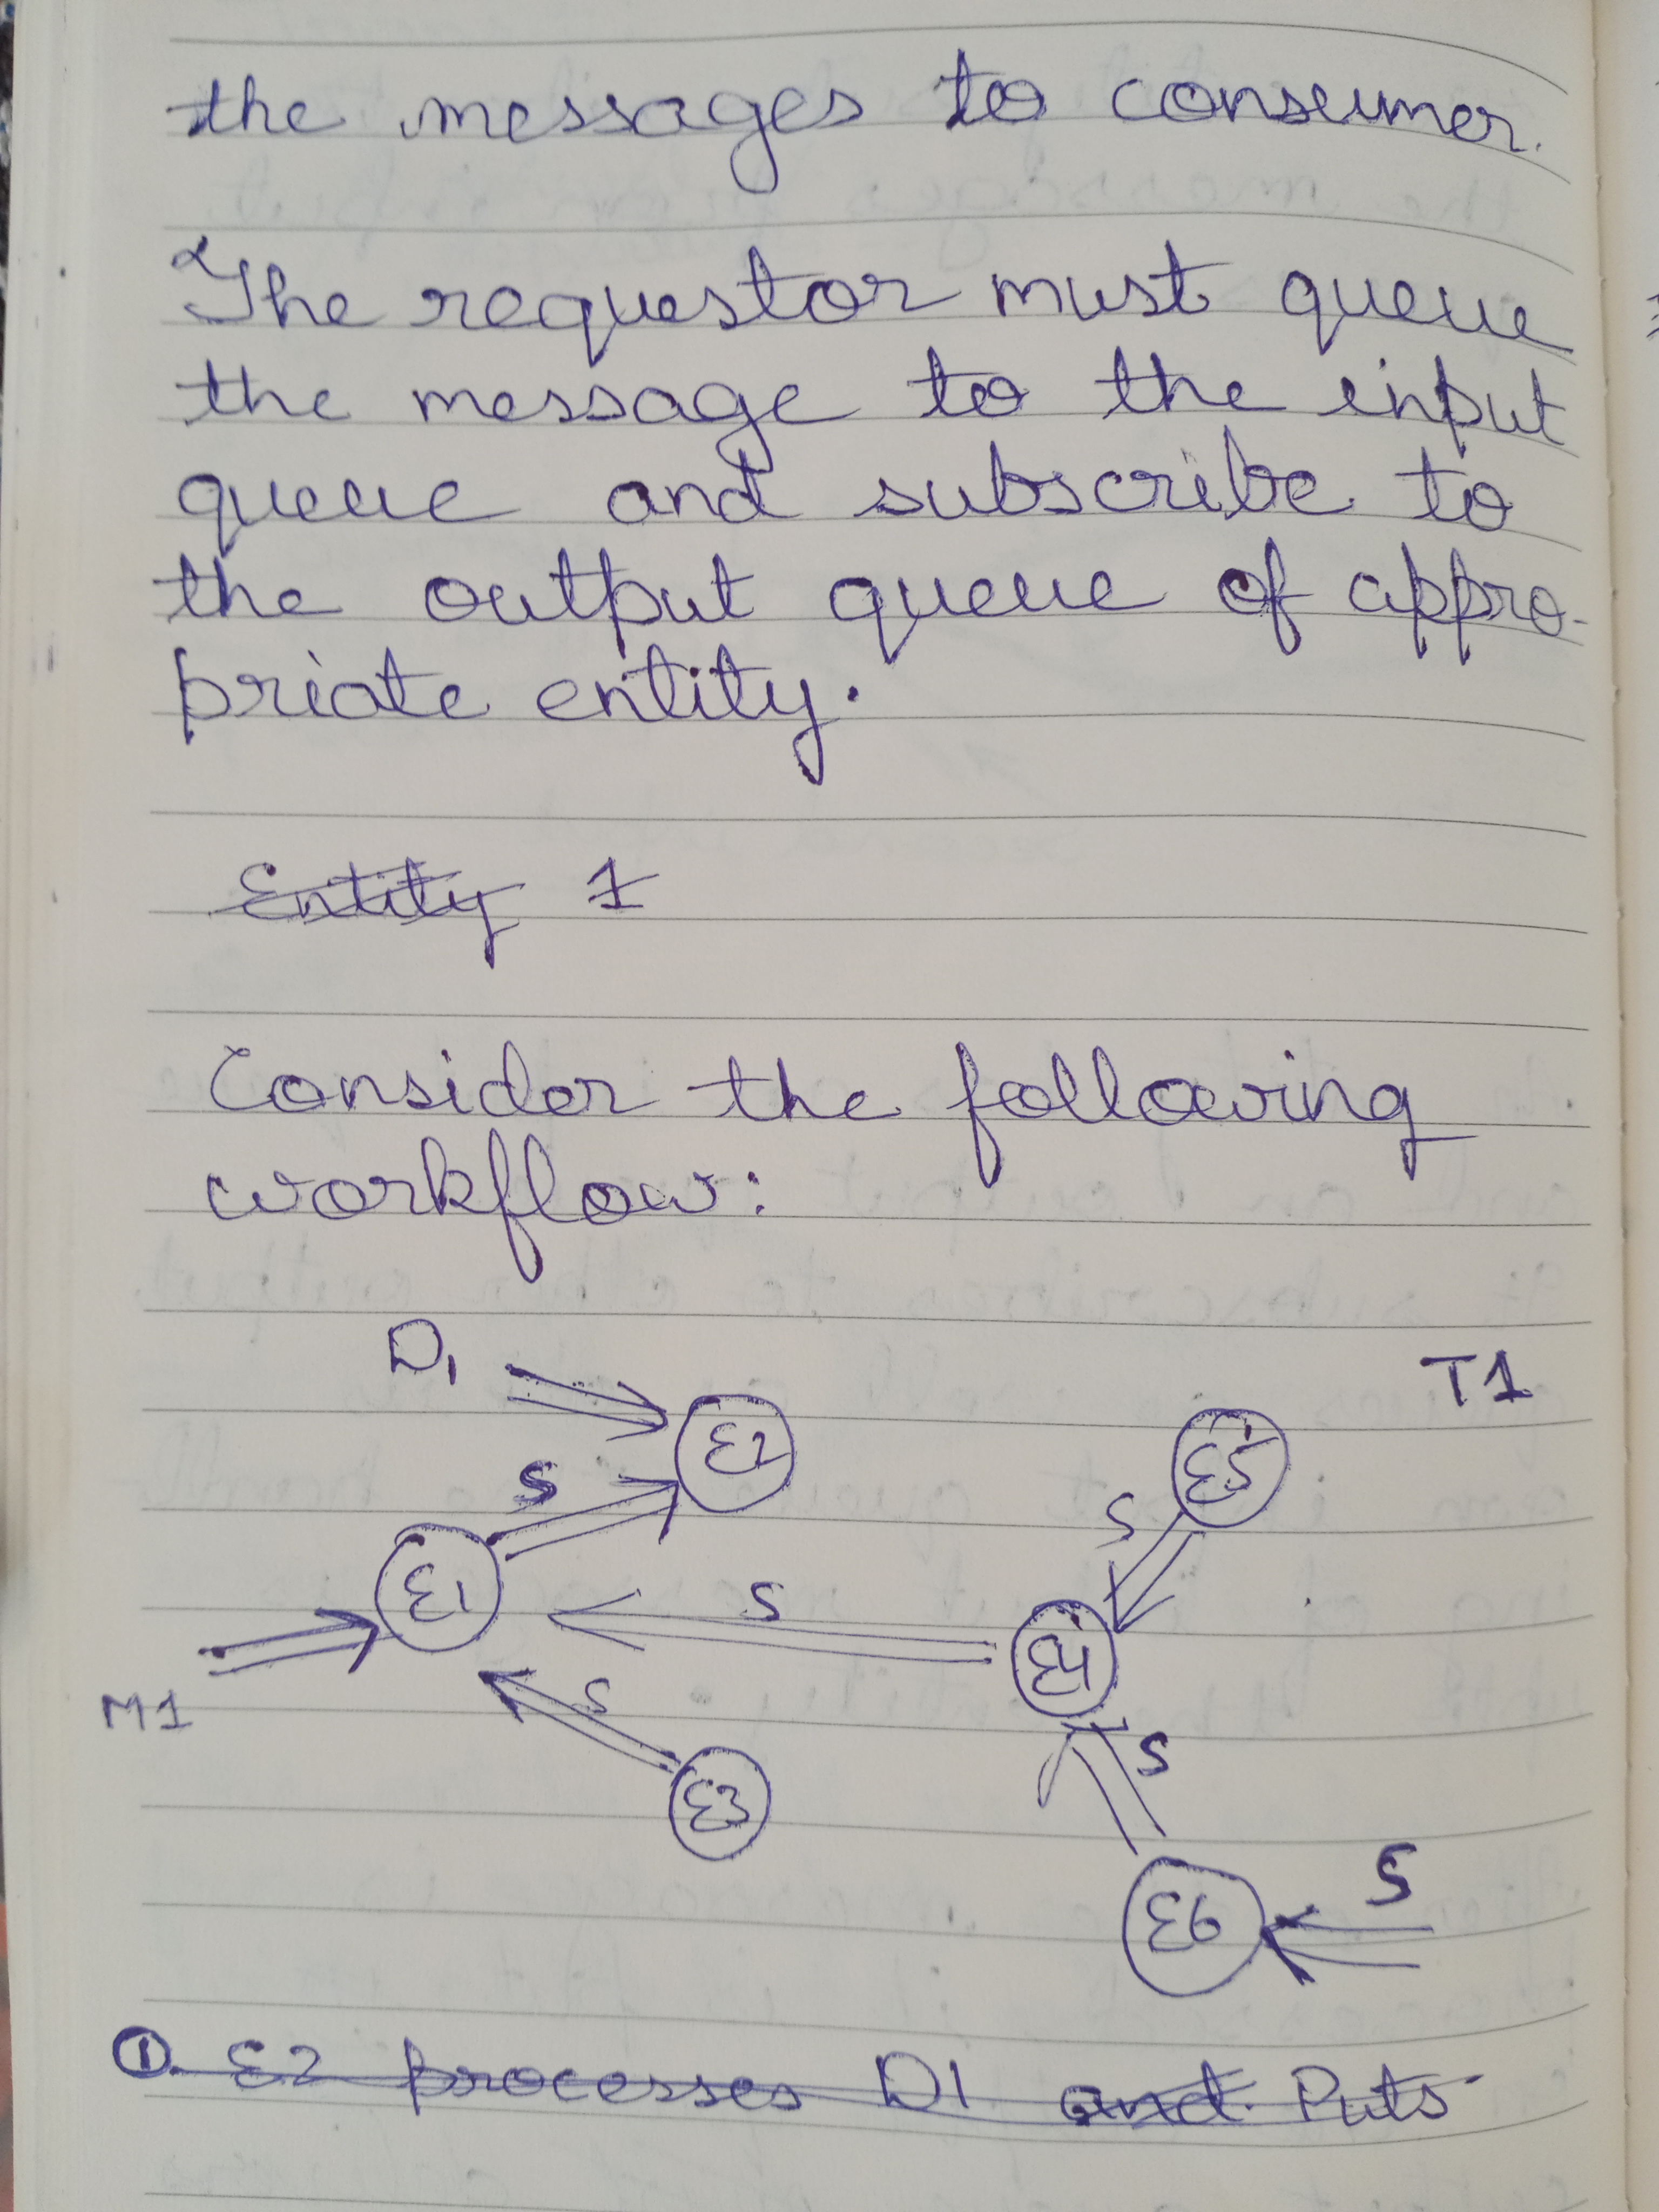 the messages to consumer.
The requestor must queue
the message to the input
queue and subscribe to
the output queue of appro-
priate entity.
Entity 1
Consider the following
workflow:
D1
T1
E2
E5
S
S
E1
S
E4
M1
S
S
E3
S
E6
① E2 processes D1 and Puts